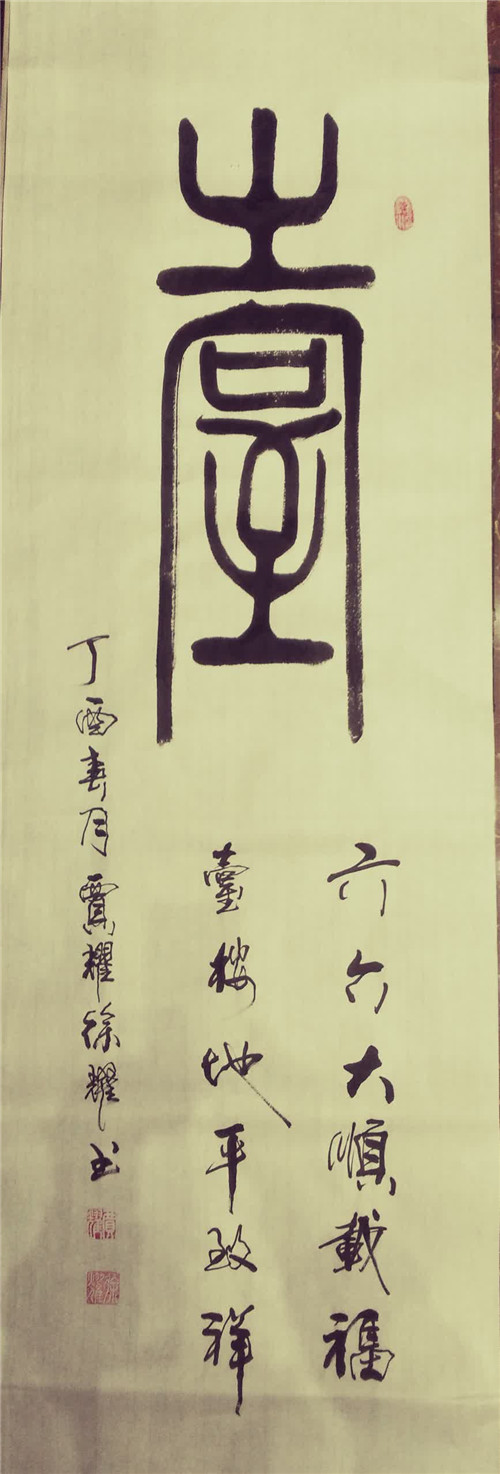 臺
六合大順載福
臺樓地平致祥
丁酉春月賈耀徐耀書